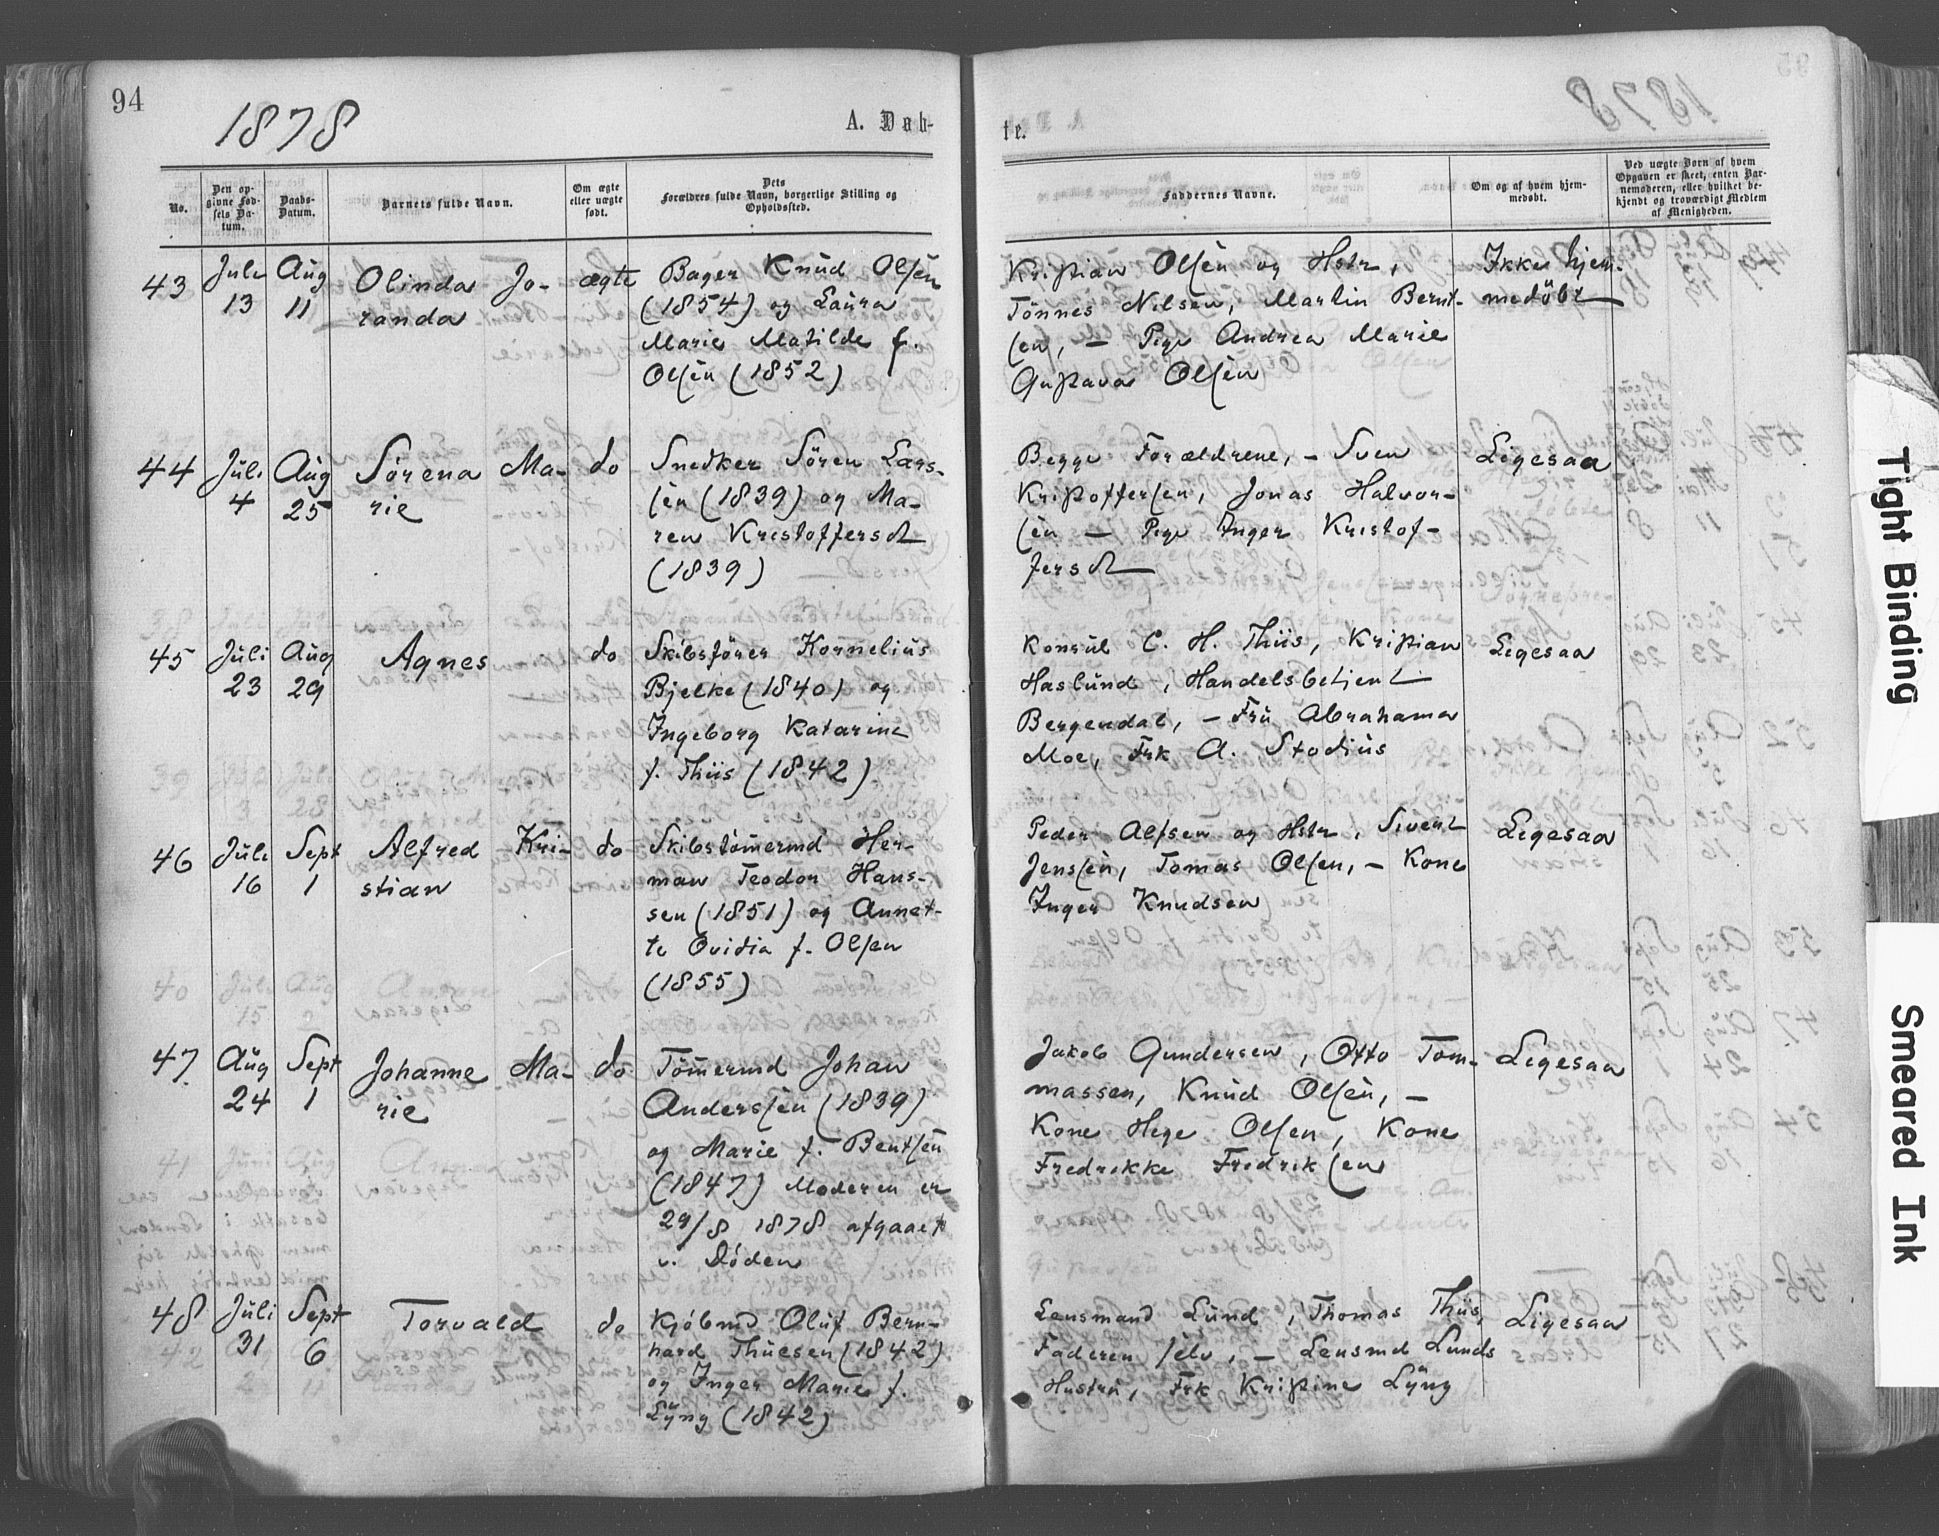 94
1878
A. Dab-
te.
No.
Den op-
givne Fød-
sels Da-
tum.
Daabs-
Datum.
Barnets fulde Navn.
Om ægte
eller uægte
født.
Dets
Forældres fulde Navn, borgerlige Stilling og
Opholdssted.
Faddernes Navne.
Om og af hvem hjem-
medøbt.
Ved uægte Børn af hvem
Opgaven er skeet, enten Bar-
nemoderen, eller hvilket be-
kjendt og troværdigt Medlem
af Menigheden.
43 Juli Aug Olinda Jo- ægte Bager Knud Olsen
13 11 randa (1854) og Laura
Marie Matilde f.
Olsen (1852)
Kristian Olsen og Hstr, Ikke hjem-
Tönnes Nilsen, Martin Bernt- medöbt
sen, — Pige Andrea Marie
Gustava Olsen
44 Juli Aug Sörena Ma- do Snedker Sören Lars-
4 25 rie sen (1839) og Ma-
ren Kristoffersdt
(1839)
Begge Forældrene, – Sven Ligesaa
Kristoffersen, Jonas Halvor-
sen — Pige Inger Kristof-
fersdt
45 Juli Aug Agnes do Skibsförer Kornelius
23 29 Bjelke (1840) og
Ingeborg Katarine
f. Thiis (1842)
Konsul C. H. Thiis, Kristian Ligesaa
Haslund, Handelsbetjent
Bergendal, – Fru Abrahama
Moe, Frk A. Stodius
46 Juli Sept Alfred Kri- do Skibstömermd Her-
16 1 stian man Teodor Hans-
sen (1851) og Annet-
te Ovidia f. Olsen
(1855)
Peder Alfsen og Hstr, Sivert Ligesaa
Jenssen, Tomas Olsen, – Kone
Inger Knudsen
47. Aug Sept Johanne Ma- do Tömermd Johan
24 1 rie Anderssen (1839)
og Marie f. Bentsen
(1847) Moderen er
29/8 1878 afgaaet
v. Döden
Jakob Gundersen, Otto Tom- Ligesaa
massen, Knud Olsen, –
Kone Hege Olsen, Kone
Fredrikke Fredriksen
48 Juli Sept Torvald do Kjöbmd Oluf Bern-
31 6 hard Thuesen (1842)
og Inger Marie f.
Lyng (1842)
Lensmand Lund, Thomas Thiis, Ligesaa
Faderen selv, – Lensmd Lunds
Hustru, Frk Kristine Lyng
Tight Binding
Smeared Ink